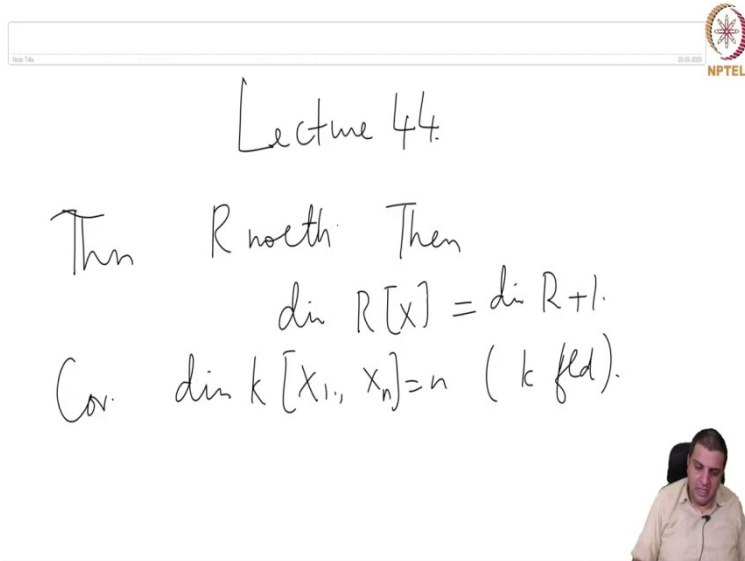 NPTEL
Note Title
Lecture 44.
Thm R noeth. Then
dim R[X] = dim R+1.
Cor. dim k[X1.., Xn]=n ( k fld).